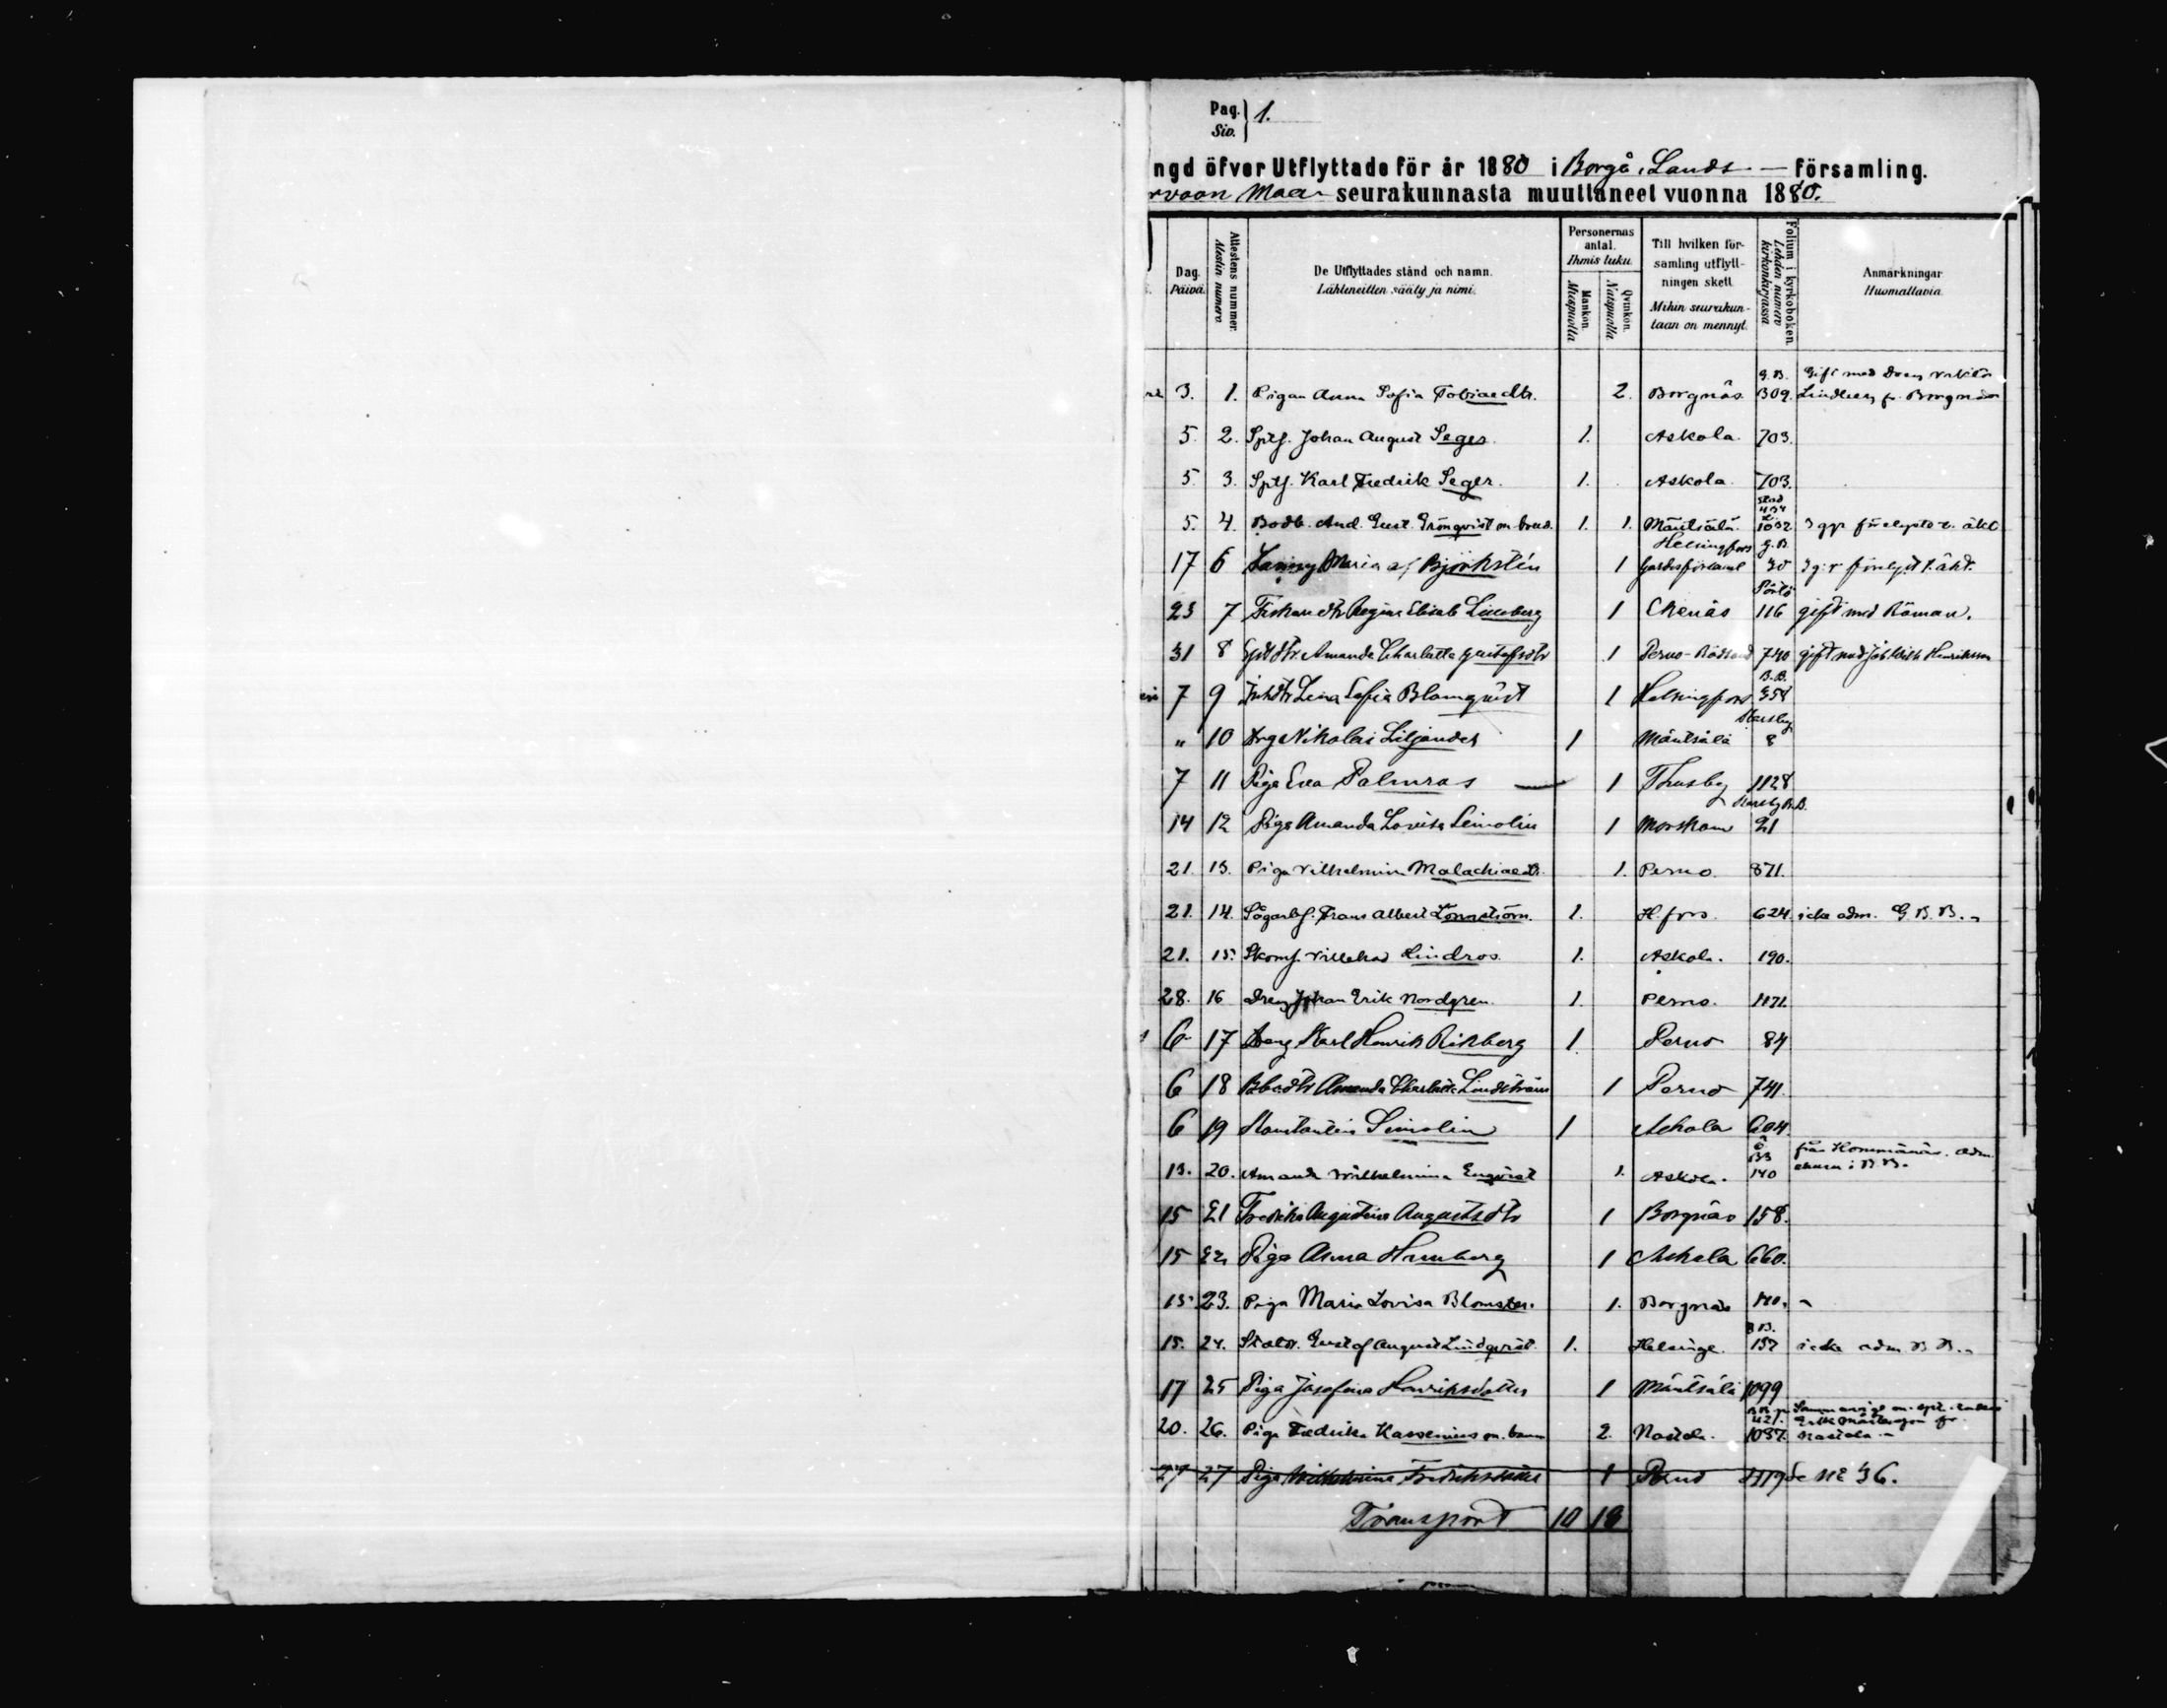 Pag. } 1.
Siv.
ngd öfver Utflyttade för år 1880 i Borgå Lands — församling.
rvoon Maa- seurakunnasta muuttaneet vuonna 1880.
Dag. Päivä.
Attestens nummer. Alestin numero.
De Utflyttades stånd och namn. Lähteneitten sääty ja nimi.
Personernas antal. Ihmis luku.
Mankön. Miespuolia
Qvinkön. Naispuolia
Till hvilken församling utflyttningen skett. Mihin seurakuntaan on mennyt.
Folium i kyrkoboken. Lehden numero kirkonkirjassa
Anmärkningar Huomattavia
3. 1. Pigan Anna Sofia Tobiaedtr. 2. Borgnäs G.B. 309. Gift med Dreng Lindberg fr. Borgnäs
5. 2. Sptf. Johan August Seger. 1. Askola. 703.
5. 3. Sptf. Karl Fredrik Seger. 1. Askola. 703.
5. 4. Bodb. And. Gust. Grönqvist m. 1. 1. Mäntsälä. 1032
17 6 Fanny Maria af Björkstén 1 Helsingfors G.B. 20
23 7 Regina Elisab Lindberg 1 Ekenäs 116 gift med Råman.
31 8 Amanda Charlotta Gustafsdtr 1 Perno 740 gift med Joh Wilh Henriksson
7 9 Lena Sofia Blomqvist 1 Helsingfors B.B. 358
" 10 Drg Nikolai Liljander 1 Mäntsälä 8
7 11 Piga Eva Palmras — 1 Thusby 1128
14 12 Piga Amanda Lovisa Leinolin 1 Morskom 21
21. 13. Piga Vilhelmina Malachiaedtr. 1. Perno. 871.
21. 14. Frans Albert Lönnström. 1. H.fors. 624. icke adm. G.B.B.
21. 15. Villehad Hindros. 1. Askola. 190.
28. 16 Dreng Johan Erik Nordgren. 1. Perno. 1171.
6 17 Dreng Karl Henrik Rikberg 1. Perno 84
6 18 Amanda Charlotta Lindström 1 Perno 741.
6 19 Konstantin Simolin 1 Askola 604.
13. 20. Amanda Wilhelmina Enqvist 1. Askola. 140 från
15 21 Fredrika Augustina Augustsdtr 1 Borgnäs 158.
15 22 Piga Anna Humberg 1 Askola 660.
15. 23. Piga Maria Lovisa Blomster. 1. Borgnäs
15. 24. Gustaf August Lindqvist. 1. Helsinge. B.B. 157 icke adm B.B.
17 25 Piga Josefina Henriksdotter 1 Mäntsälä 1099
20. 26. Piga Fredrika Kassenius m. barn 2. Nastola. 421. 1037. Nastola
27 27 Piga Wilhelmina Fredriksdotter 1 Perno 1119 Se No 36.
Transport 10 18